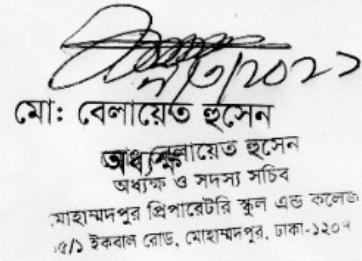 মো: বেলায়েত হুসেন
অধ্যক্ষ বেলায়েত হুসেন
অধ্যক্ষ ও সদস্য সচিব
মোহাম্মদপুর প্রিপারেটরি স্কুল এন্ড কলেজ
ইকবাল রোড, মোহাম্মদপুর, ঢাকা-১২০৭